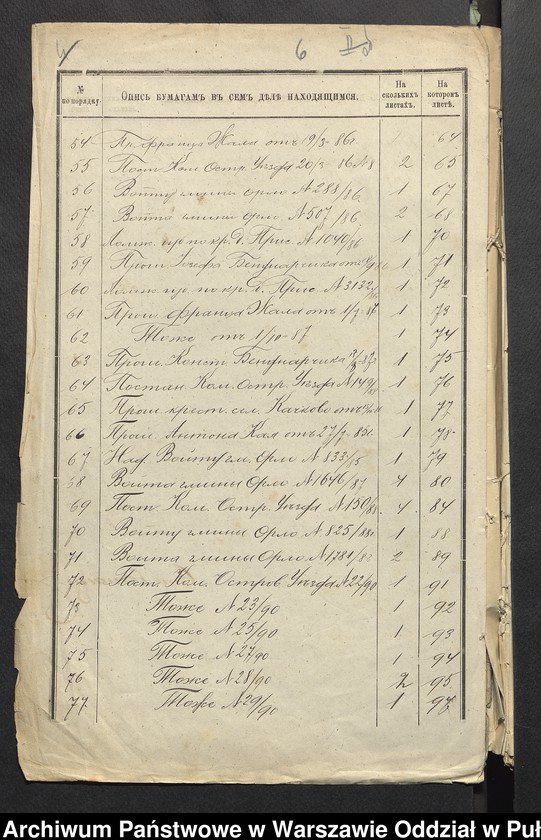 6
№ по порядку.
Опись бумагамъ въ семъ дѣлѣ находящимся.
На сколькихъ листахъ.
На которомъ листѣ.
54 Пр. Франца Жала отъ 19/3 - 86г. 64
55 Пост. Ком. Остр. Уѣзда 20/3 - 86 № 8 2 65
56 Войту гмины Орло № 288/86 1 67
57 Войта гмины Орло № 507/86 2 68
58 Ломж. по кр. д. Прис. № 1040/86 1 70
59 Прош. Іозефа Бенфнарчика отъ 1 71
60 Ломж. по кр. д. Прис № 3132 1 72
61 Прош. Франца Жала отъ 1/7 - 87 1 73
62 Тоже отъ 1/10 - 87 1 74
63 Прош. Конст. Бенфнарчика 1 75
64 Постан. Ком. Остр. Уѣзда № 149 1 76
65 Прош. крест. сел. Качково отъ 1 77
66 Прош. Антона Жал отъ 27/7 - 85г. 1 78
67 Над. Войту гм. Орло № 333/85 1 79
68 Войта гмины Орло № 1646/87 4 80
69 Пост. Ком. Остр. Уѣзда № 150/88 4 84
70 Войту гмины Орло № 825/88г. 1 88
71 Войта гмины Орло № 1781/88 2 89
72 Пост. Ком. Остров Уѣзда № 22/90 1 91
73 Тоже № 23/90 1 92
74 Тоже № 25/90 1 93
75 Тоже № 27/90 1 94
76 Тоже № 28/90 2 95
77 Тоже № 29/90 1 97
Archiwum Państwowe w Warszawie Oddział w Puł